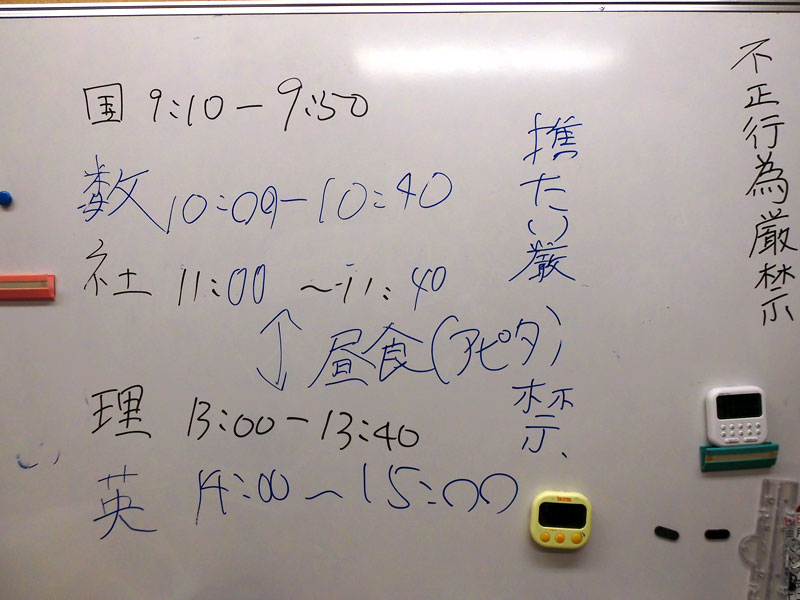 国 9:10－9:50
数 10:00－10:40
社 11:00 ～11:40
昼食(アピタ)
理 13:00－13:40
英 14:00～15:00
携たい厳禁、
不正行為厳禁